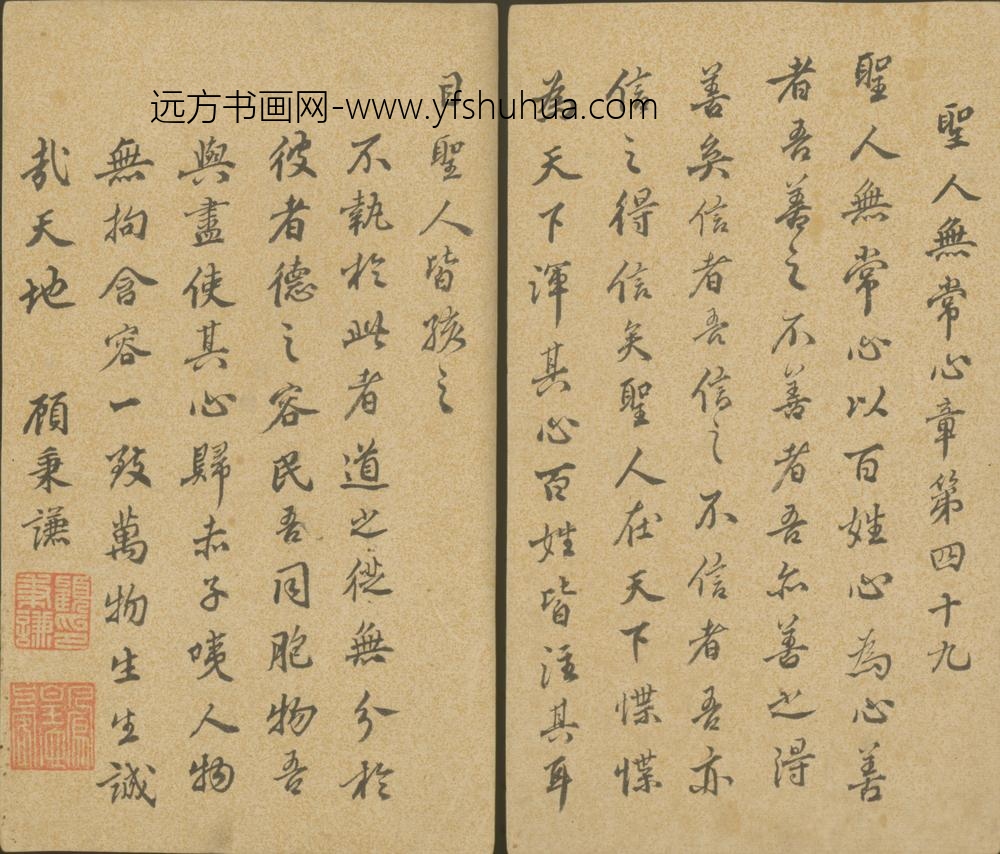 远方书画网-www.yfshuhua.com
聖人無常心章第四十九
聖人無常心以百姓心為心善
者吾善之不善者吾亦善之得
善矣信者吾信之不信者吾亦
信之得信矣聖人在天下惵惵
為天下渾其心百姓皆注其耳
目聖人皆孩之
不執於此者道之從無分於
彼者德之容民吾同胞物吾
與盡使其心歸赤子咦人物
無拘含容一致萬物生生誠
哉天地 頋秉謙
顧秉謙印